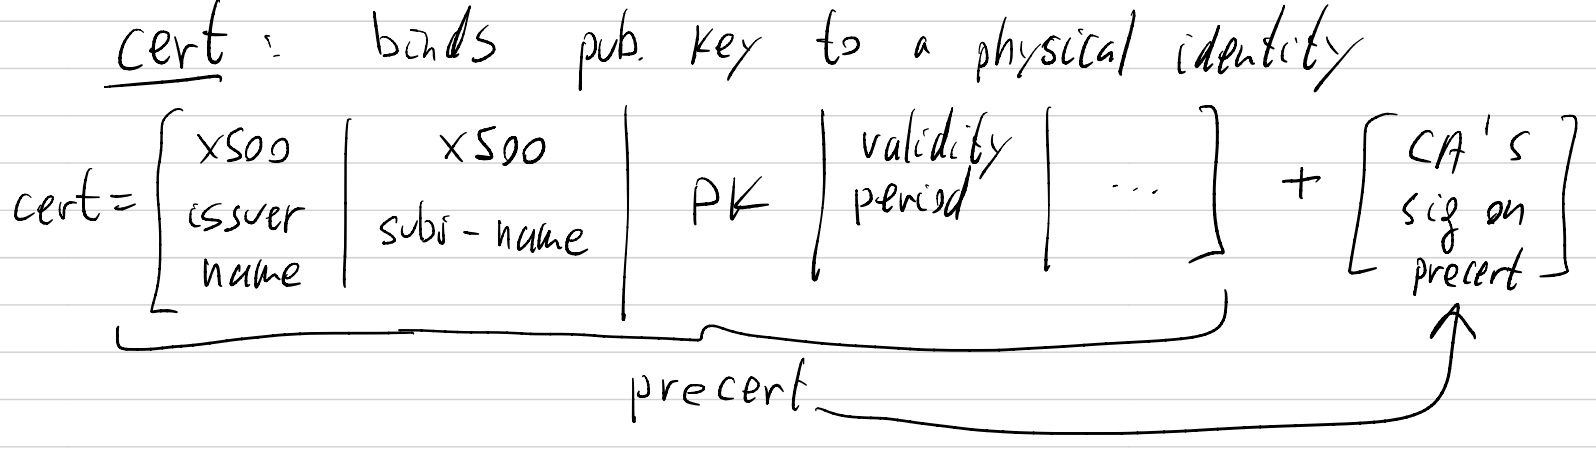 cert: binds pub. key to a physical identity
cert = [ x500 issuer name | x500 subj-name | PK | validity period | ... ] + [ CA's sig on precert ]
precert